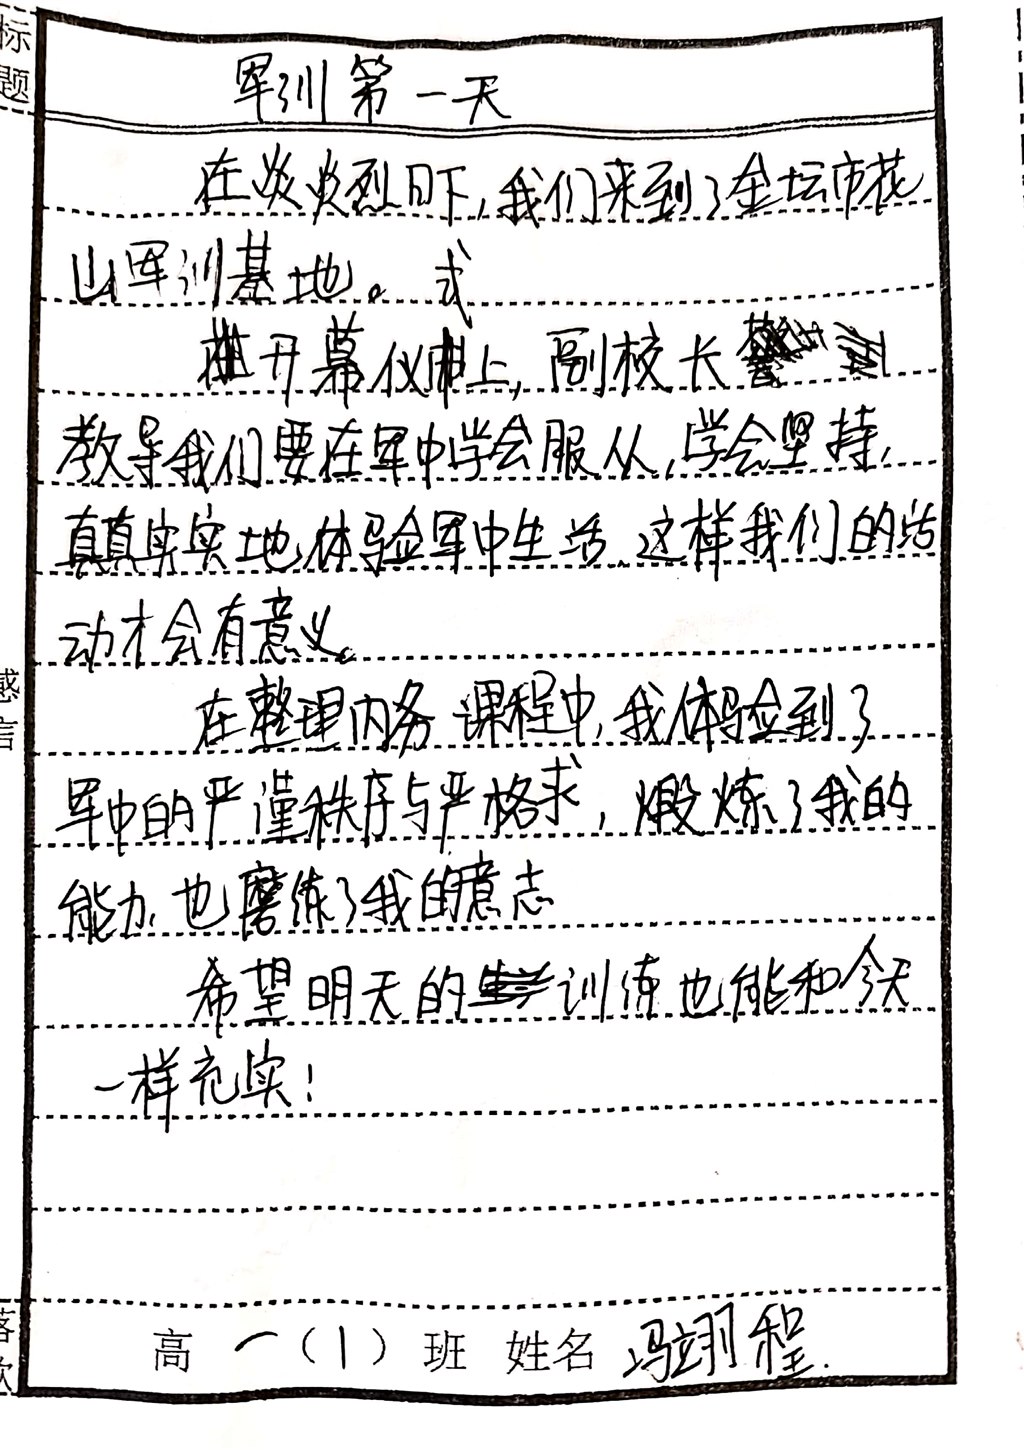 标题
军训第一天
在炎炎烈日下,我们来到了金坛市花
山军训基地。
式
在开幕仪上,副校长
教导我们要在军中学会服从,学会坚持,
真真实实地体验军中生活,这样我们的活
动才会有意义。
在整理内务课程中,我体验到了
军中的严谨秩序与严格求,煅炼了我的
能力,也磨练了我的意志
希望明天的训练也能和今天
一样充实!
感言
落款
高一(1)班 姓名 冯翊程.